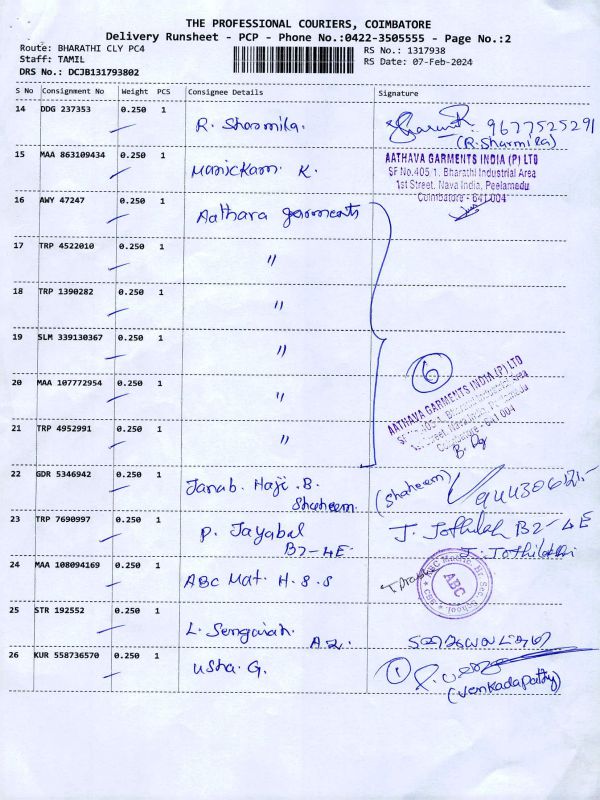 THE PROFESSIONAL COURIERS, COIMBATORE
Delivery Runsheet - PCP - Phone No.:0422-3505555 - Page No.:2
Route: BHARATHI CLY PC4
Staff: TAMIL
DRS No.: DCJB131793802
RS No.: 1317938
RS Date: 07-Feb-2024
S No Consignment No Weight PCS Consignee Details Signature
14 DDG 237353 0.250 1 R. Sharmila. 9677525291
(R.Sharmila)
15 MAA 863109434 0.250 1 Manickam K.
AATHAVA GARMENTS INDIA (P) LTD
SF No.405 1, Bharathi Industrial Area
1st Street, Nava India, Peelamedu
Coimbatore - 641 004
16 AWY 47247 0.250 1 Aathava garments
17 TRP 4522010 0.250 1 "
18 TRP 1390282 0.250 1 "
19 SLM 339130367 0.250 1 "
6
20 MAA 107772954 0.250 1 "
AATHAVA GARMENTS INDIA (P) LTD
Coimbatore - 641 004
21 TRP 4952991 0.250 1 "
22 GDR 5346942 0.250 1 Janab. Haji. B.
Shaheem. (Shaheem)
23 TRP 7690997 0.250 1 P. Jayabal
B2-4E J. Jothilak B2-4E
24 MAA 108094169 0.250 1 ABC Mat. H.S.S
ABC
25 STR 192552 0.250 1 L. Sengaiah
26 KUR 558736570 0.250 1 Usha G. 1
(Venkadapathy)